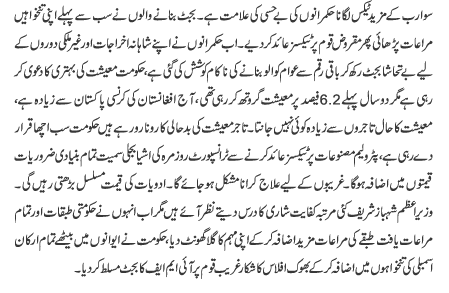 سوارب کے مزید ٹیکس لگانا حکمرانوں کی بے حسی کی علامت ہے۔ بجٹ بنانے والوں نے سب سے پہلے اپنی تنخواہیں
مراعات پڑھائی پھر مقروض قوم پر ٹیکسز عائد کر دیے۔ اب حکمرانوں نے اپنے شاہانہ اخراجات اور غیر ملکی دوروں کے
لیے بے تحاشا بجٹ رکھ کر باقی رقم سے عوام کو الو بنانے کی ناکام کوشش کی گئی ہے، حکومت معیشت کی بہتری کا دعویٰ کر
رہی ہے مگر دو سال پہلے 6.2 فیصد پر معیشت گروتھ کر رہی تھی، آج افغانستان کی کرنسی پاکستان سے زیادہ ہے،
معیشت کا حال تاجروں سے زیادہ کوئی نہیں جانتا۔ تاجر معیشت کی بدحالی کا رونا رو رہے ہیں حکومت سب اچھا قرار
دے رہی ہے، پٹرولیم مصنوعات پر ٹیکسز عائد کرنے سے ٹرانسپورٹ روزمرہ کی اشیا بجلی سمیت تمام بنیادی ضروریات
قیمتوں میں اضافہ ہوگا۔ غریبوں کے لیے علاج کرانا مشکل ہو جائے گا۔ ادویات کی قیمت مسلسل بڑھتی رہیں گی۔
وزیر اعظم شہباز شریف کئی مرتبہ کفایت شاری کا درس دیتے نظر آئے ہیں مگر اب انہوں نے حکومتی طبقات اور تمام
مراعات یافت طبقے کی مراعات مزید اضافہ کر کے اپنی مہم کا گلا گھونٹ دیا، حکومت نے ایوانوں میں بیٹھے تمام ارکان
اسمبلی کی تنخواہوں میں اضافہ کر کے بھوک افلاس کا شکار غریب قوم پر آئی ایم ایف کا بجٹ مسلط کر دیا۔